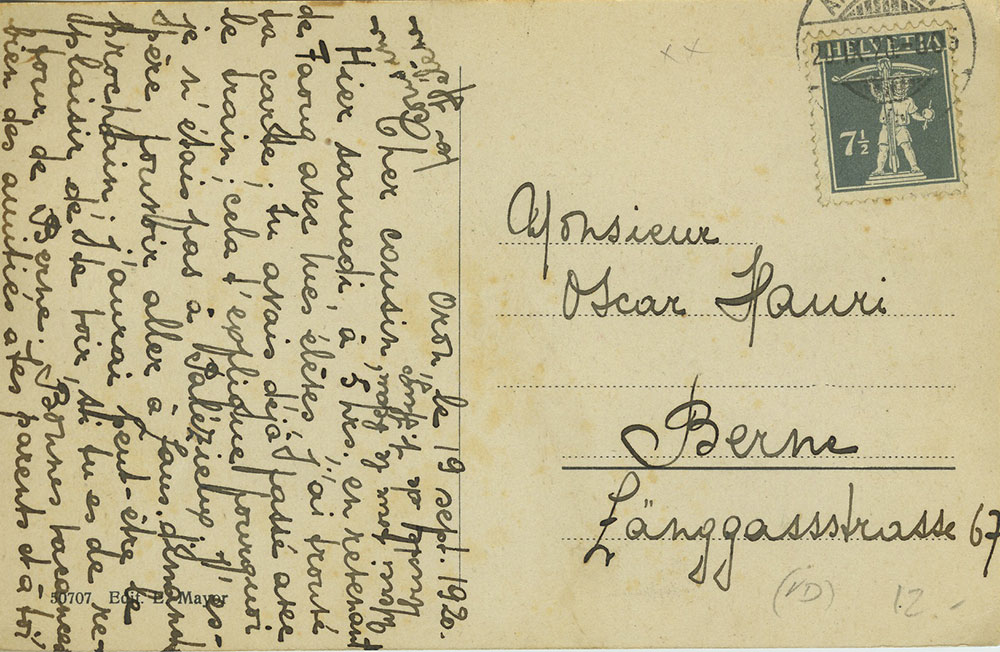 Oron, le 19 sept. 1920.
Cher cousin,
Hier samedi, à 5 hrs. en revenant
de Faoug avec mes élèves, j'ai trouvé
ta carte; tu avais déjà passé avec
le train; cela t'explique pourquoi
je n'étais pas à Palézieux. J'es-
père pouvoir aller à Laus. dimanche
prochain; j'aurai peut-être le
plaisir de te voir, si tu es de re-
tour de Berne. Bonnes vacances
bien des amitiés à tes parents et à toi
HELVETIA
7½
Monsieur
Oscar Hauri
Berne
Länggassstrasse 67
50707 Edit. E. Mayor
(VD)
12.-